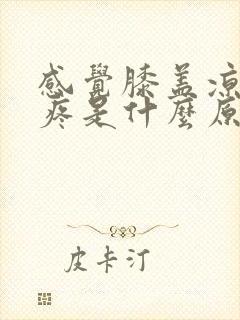 感覺膝蓋涼
疼是什麼原
皮卡汀